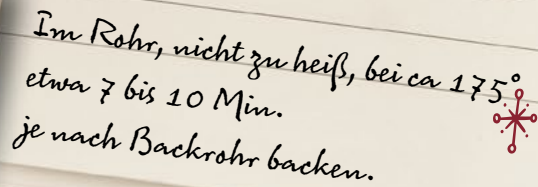 Im Rohr, nicht zu heiß, bei ca 175°
etwa 7 bis 10 Min.
je nach Backrohr backen.